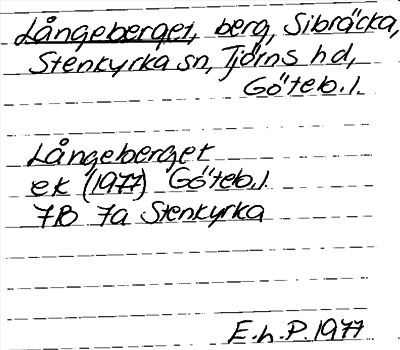 Långeberget, berg, Sibräcka,
Stenkyrka sn, Tjörns hd,
Göteb. l.
Långeberget
ek (1977) Göteb. l.
7B 7a Stenkyrka
E. h. P. 1977